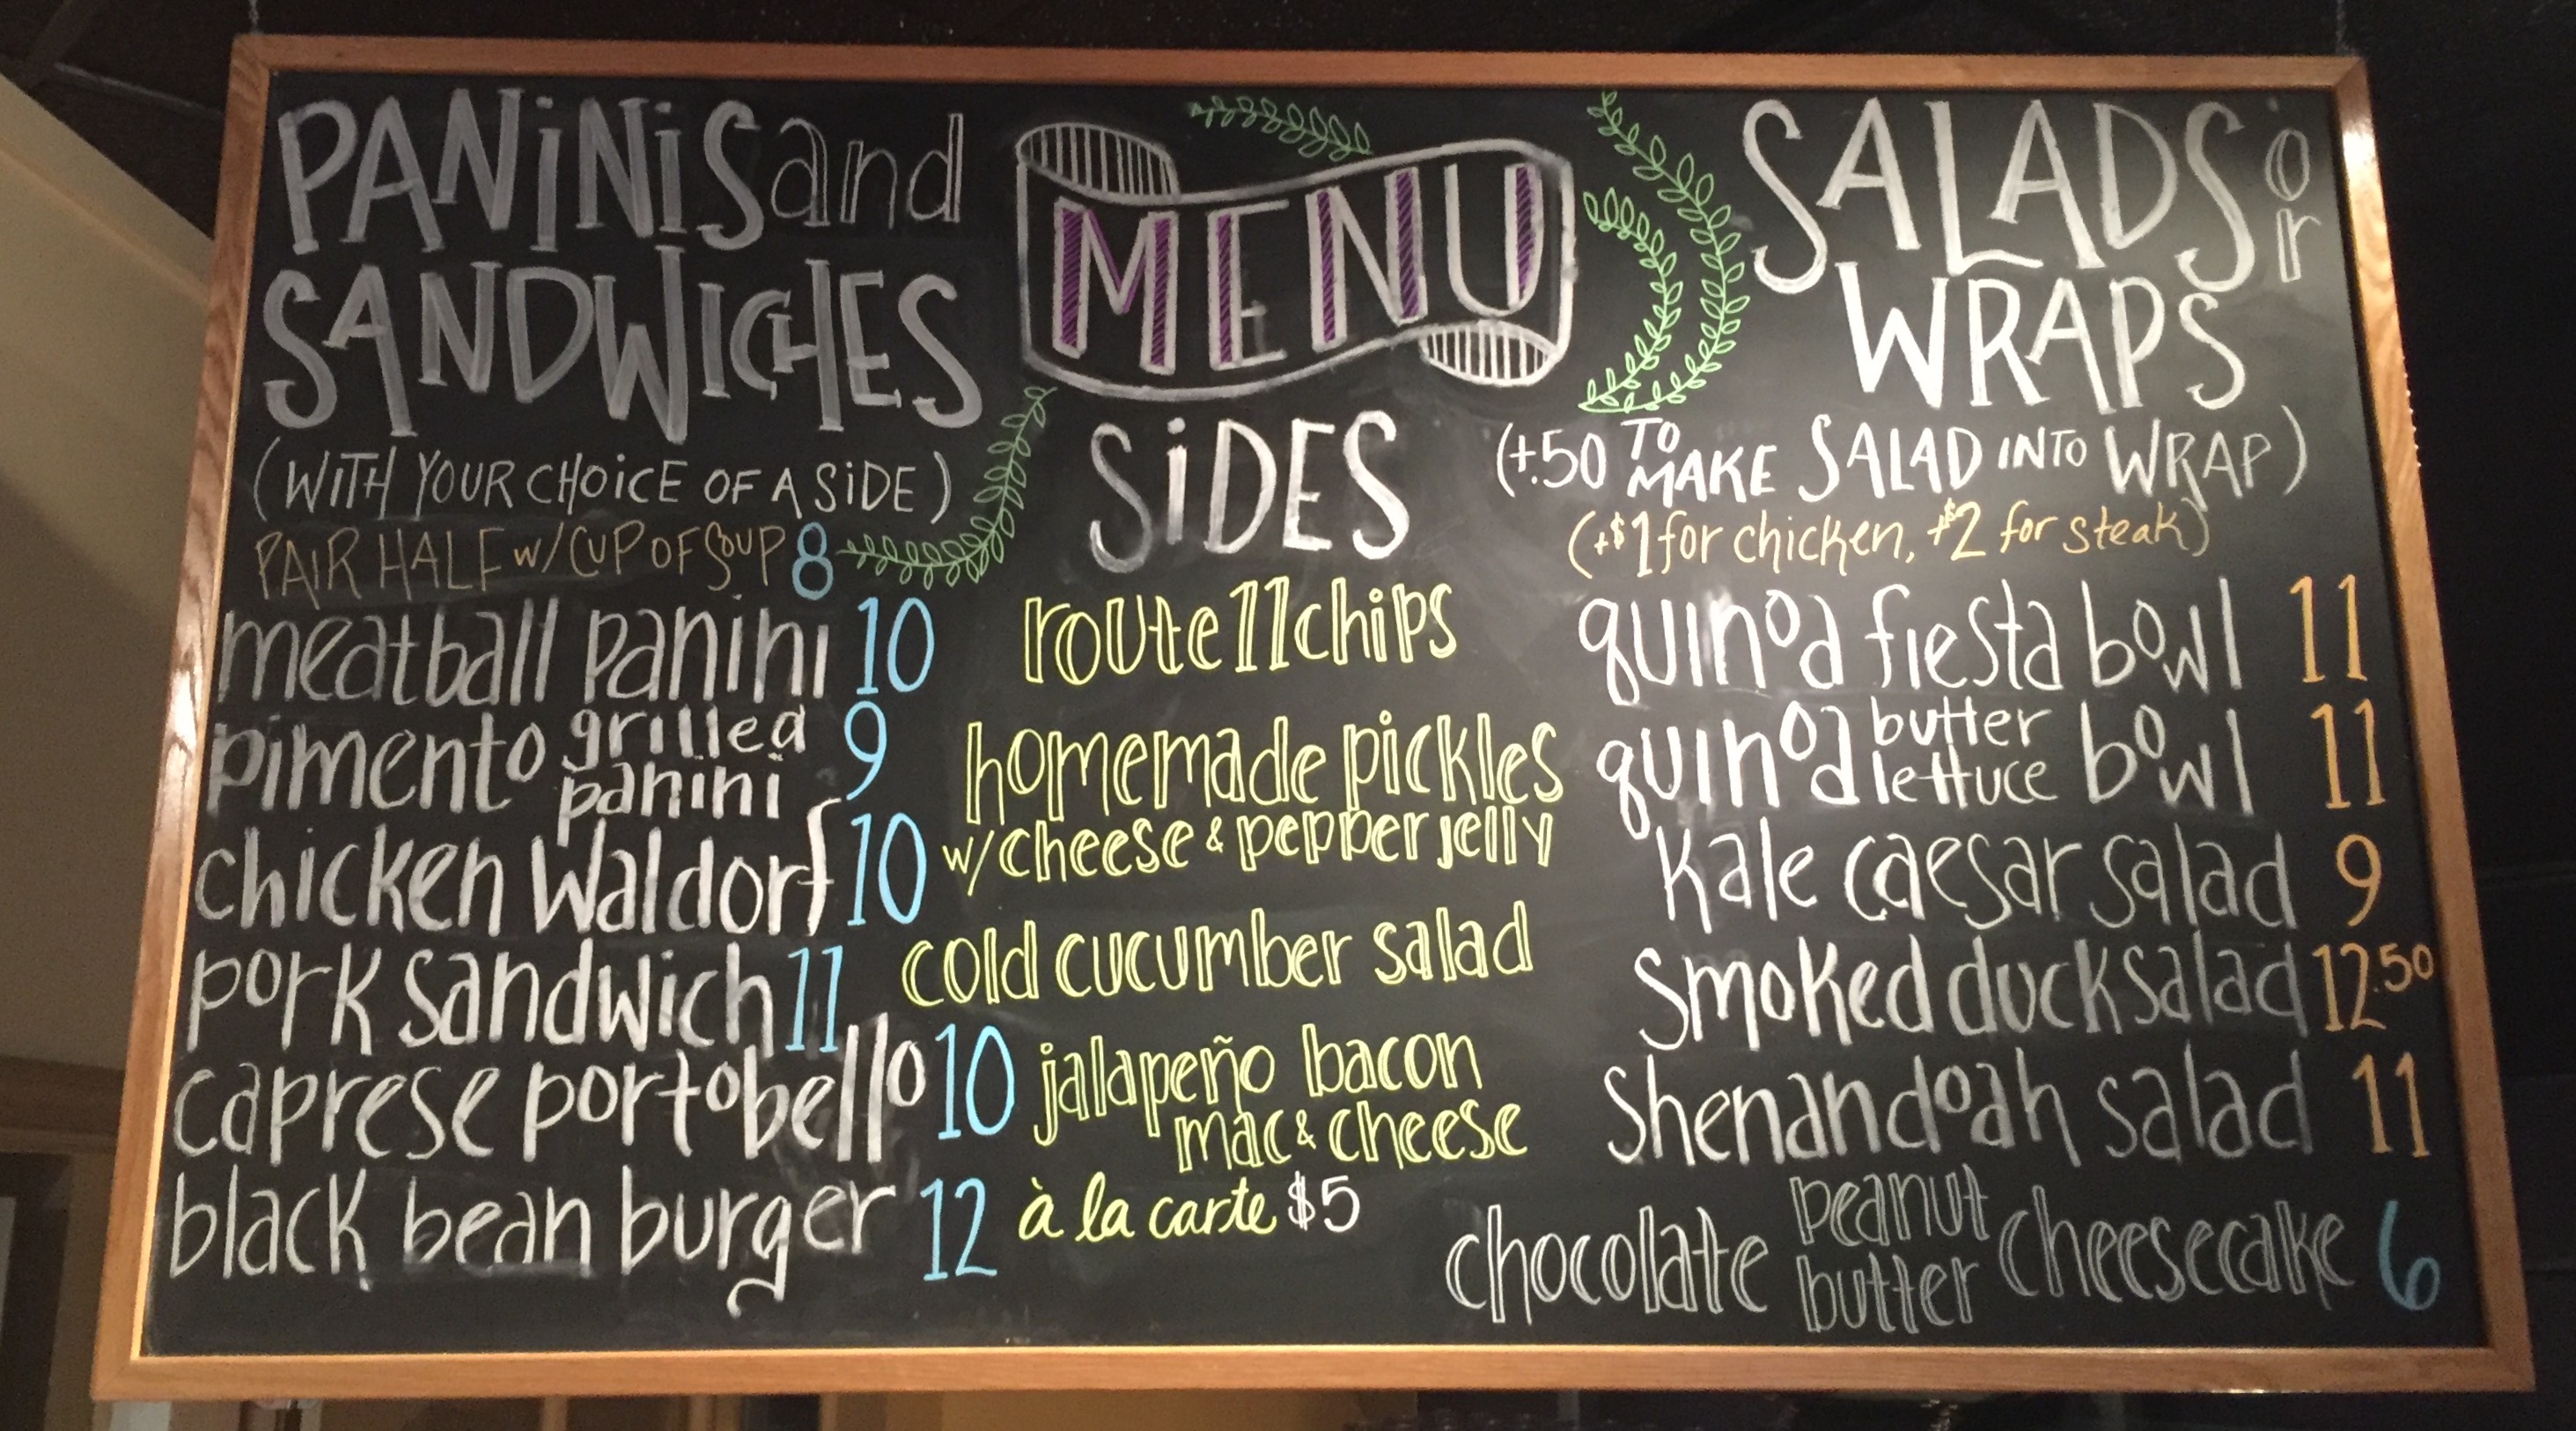 PANiNiS and
SANDWICHES
(WITH YOUR CHOiCE OF A SiDE)
PAIR HALF w/ CUP OF SOUP 8
meatball panini 10
pimento grilled panini 9
chicken Waldorf 10
pork sandwich 11
caprese portobello 10
black bean burger 12
MENU
SiDES
route 11 chips
homemade pickles
w/ cheese & pepper jelly
cold cucumber salad
jalapeño bacon
mac & cheese
à la carte $5
SALADS or
WRAPS
(+.50 TO MAKE SALAD INTO WRAP)
(+$1 for chicken, +$2 for steak)
quinoa fiesta bowl 11
quinoa butter lettuce bowl 11
kale caesar salad 9
smoked duck salad 12.50
Shenandoah salad 11
chocolate peanut butter cheesecake 6